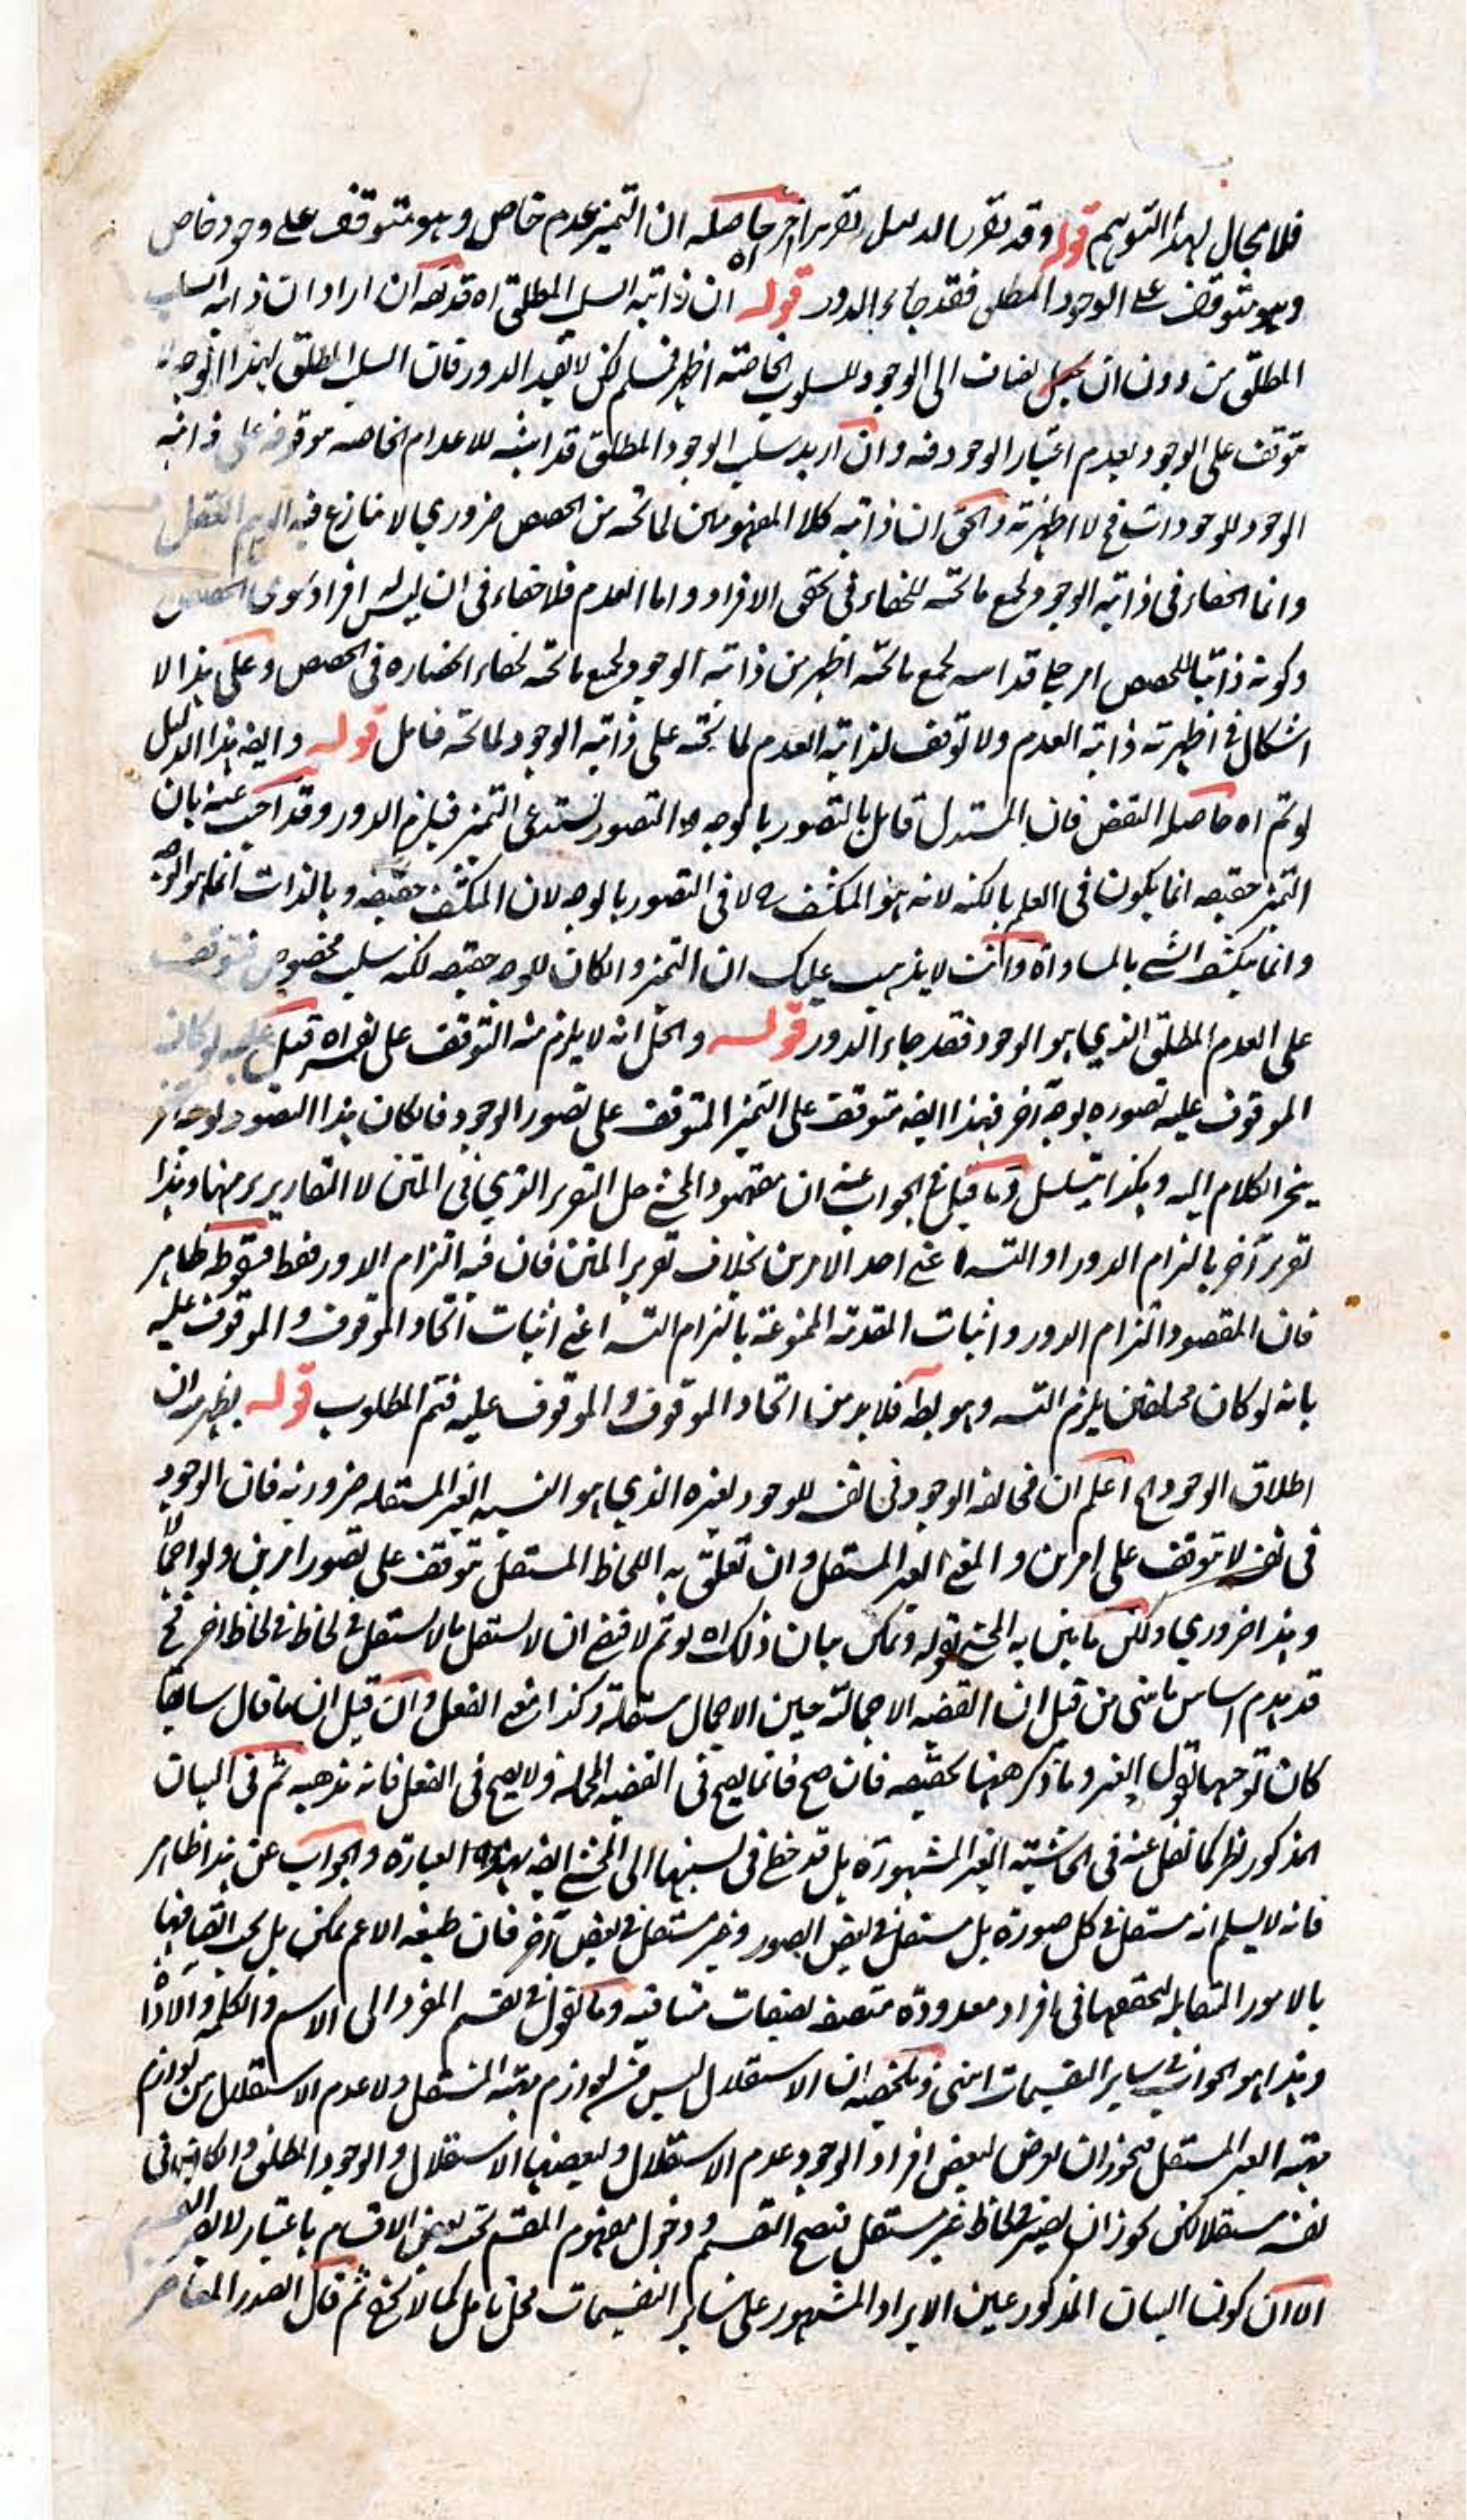 فلا مجال لهذا التوهم قوله وقد تقرر بالدليل تقريرا آخر حاصله ان التميز عدم خاص وهو متوقف على وجود خاص
وهو متوقف على الوجود المطلق فقد جاء الدور قوله ان ذاتية السلب المطلق اه قد يقه ان اراد ان ذاتية السلب
المطلق من دون ان يضاف الى الوجود للسلوب الخاصة اظهر فمسلم لكن لا يفيد الدور فان السلب المطلق بهذا الوجه لا
يتوقف على الوجود لعدم اعتبار الوجود فيه وان اريد سلب الوجود المطلق للاعدام الخاصة موقوفة على ذاتية
الوجود للوجودات فح لا اظهرية والحق ان ذاتية كلا المفهومين لما تحته من الحصص ضروري لا ينازع فيه
وانما الخفاء في ذاتية الوجود لجميع ما تحته للخفاء في تحقق الافراد واما العدم فلا خفاء في ان ليس له افراد سوى الحصص
وكونه ذاتيا للحصص امر جلي لجميع ما تحته اظهر من ذاتية الوجود لجميع ما تحته لخفاء انحصاره في الحصص وعلى هذا لا
اشكال في اظهرية ذاتية العدم ولا توقف لذاتية العدم لما تحته على ذاتية الوجود لما تحته فتامل قوله وايضه هذا الدليل
لو تم اه حاصله النقض فان المستدل قايل بالتصور بالوجه والتصور يستدعي التميز فيلزم الدور وقد اجيب عنه بان
التميز حقيقة انما يكون في العلم بالكنه لانه هو المنكشف لا في التصور بالوجه لان المنكشف حقيقة وبالذات انما هو الوجه
وانما ينكشف الشي وانت لا يذهب عليك ان التميز وان كان للوجه حقيقة لكنه سلب مخصوص فيتوقف
على العدم المطلق الذي هو الوجود فقد جاء الدور قوله والحل انه لا يلزم منه التوقف على نفسه اه قيل عليه لو كان
الموقوف عليه تصوره بوجه آخر فهذا ايضه متوقف على التميز المتوقف على تصور الوجود فان كان هذا التصور بوجه آخر
ينجر الكلام اليه وهكذا يتسلسل وما قيل في الجواب عنه ان مقصود المحشي حل التقرير الذي في المتن لا التقارير منها وهذا
تقرير آخر بالتزام الدور او التسه اعني احد الامرين بخلاف تقرير المتن فان فيه التزام الدور فقط فسقوطه ظاهر
فان المقصود التزام الدور واثبات المقدمة الممنوعة بالتزام التسه اعني اثبات اتحاد الموقوف والموقوف عليه
بانه لو كان مختلفين يلزم التسه وهو بط فلا بد من اتحاد الموقوف والموقوف عليه فتم المطلوب قوله يظهر من ان
اطلاق الوجود الخ اعلم ان مخالفة الوجود في نفسه للوجود لغيره الذي هو النسبة الغير المستقلة ضرورية فان الوجود
في نفسه لا يتوقف على امرين والمعنى الغير المستقل وان تعلق به اللحاظ المستقل يتوقف على تصور امرين ولو اجمالا
وهذا ضروري ولكن ما بين به المحشي بقوله ويمكن بيان ذلك اه لو تم لاقتضى ان لا يستقل ما لا يستقل في لحاظ في لحاظ آخر فح
قد يهدم اساس ما بنى من قبل ان القضية الاجمالية حين الاجمال مستقلة وكذا معنى الفعل وان قيل ان ما قال سابقا
كان توجيها لقول الغير وما ذكر ههنا تحقيقه فان صح فانما يصح في القضية المجملة ولا يصح في الفعل فانه مذهبه ثم في البيان
المذكور نظر كما نقل عنه في الحاشية الغير المشهورة بل قد خطئ في نسبتها الى المحشي ايضه بهذه العبارة والجواب عن هذا ظاهر
فانه لا يسلم انه مستقل في كل صورة بل مستقل في بعض الصور وغير مستقل في بعض آخر فان طبيعة الاعم يمكن بل يجب اتصافها
بالامور المتقابلة لتحققها في افراد معدودة متصفة بصفات متنافية وما تقول في تقسيم المفرد الى الاسم والكلمة والاداة
وهذا هو الجواب في ساير التقسيمات انتهى وتلخيصه ان الاستقلال ليس من لوازم مهية المستقل ولا عدم الاستقلال من لوازم
مهية الغير المستقل فيجوز ان يعرض لبعض افراد الوجود عدم الاستقلال ولبعضها الاستقلال والوجود المطلق وان كان في
نفسه مستقلا لكن يجوز ان يصير في لحاظ غير مستقل فيصح التقسيم ودخول مفهوم المقسم تحت بعض الاقسام باعتبار
الا ان كون البيان المذكور عين الايراد المشهور على ساير التقسيمات محل تامل كما لا يخفى ثم قال الصدر المعاصر